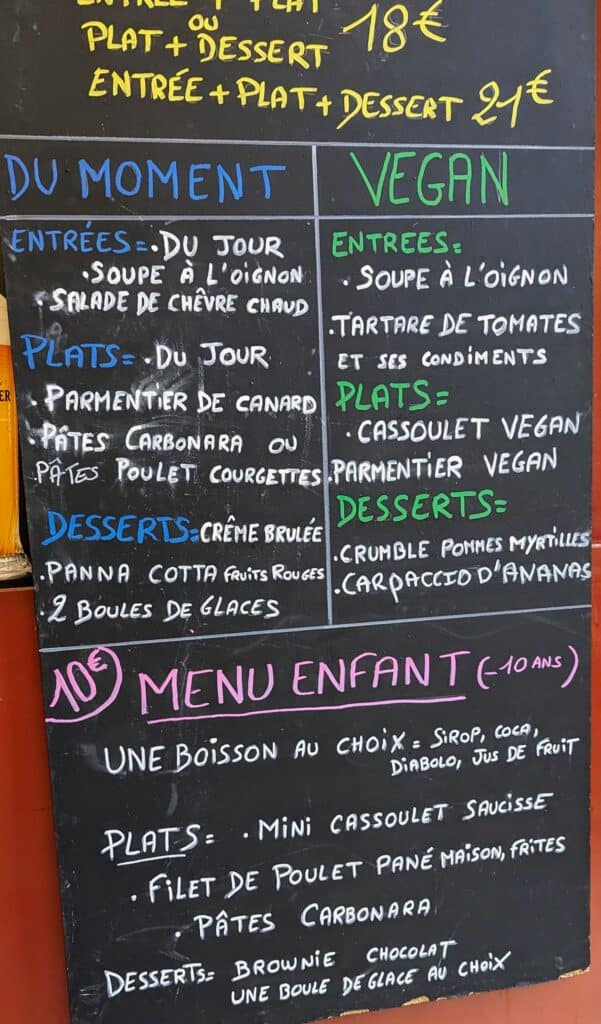 ENTRÉE + PLAT
OU
PLAT + DESSERT 18€
ENTRÉE + PLAT + DESSERT 21€
DU MOMENT
ENTRÉES = . DU JOUR
. SOUPE À L'OIGNON
. SALADE DE CHÊVRE CHAUD
PLATS = . DU JOUR
. PARMENTIER DE CANARD
. PÂTES CARBONARA OU
. PÂTES POULET COURGETTES
DESSERTS = CRÊME BRULÉE
. PANNA COTTA FRUITS ROUGES
. 2 BOULES DE GLACES
VEGAN
ENTREES =
. SOUPE À L'OIGNON
. TARTARE DE TOMATES
ET SES CONDIMENTS
PLATS =
. CASSOULET VEGAN
. PARMENTIER VEGAN
DESSERTS =
. CRUMBLE POMMES MYRTILLES
. CARPACCIO D'ANANAS
10€ MENU ENFANT (-10 ANS)
UNE BOISSON AU CHOIX = SIROP, COCA,
DIABOLO, JUS DE FRUIT
PLATS = . MINI CASSOULET SAUCISSE
. FILET DE POULET PANÉ MAISON, FRITES
. PÂTES CARBONARA
DESSERTS = BROWNIE CHOCOLAT
UNE BOULE DE GLACE AU CHOIX